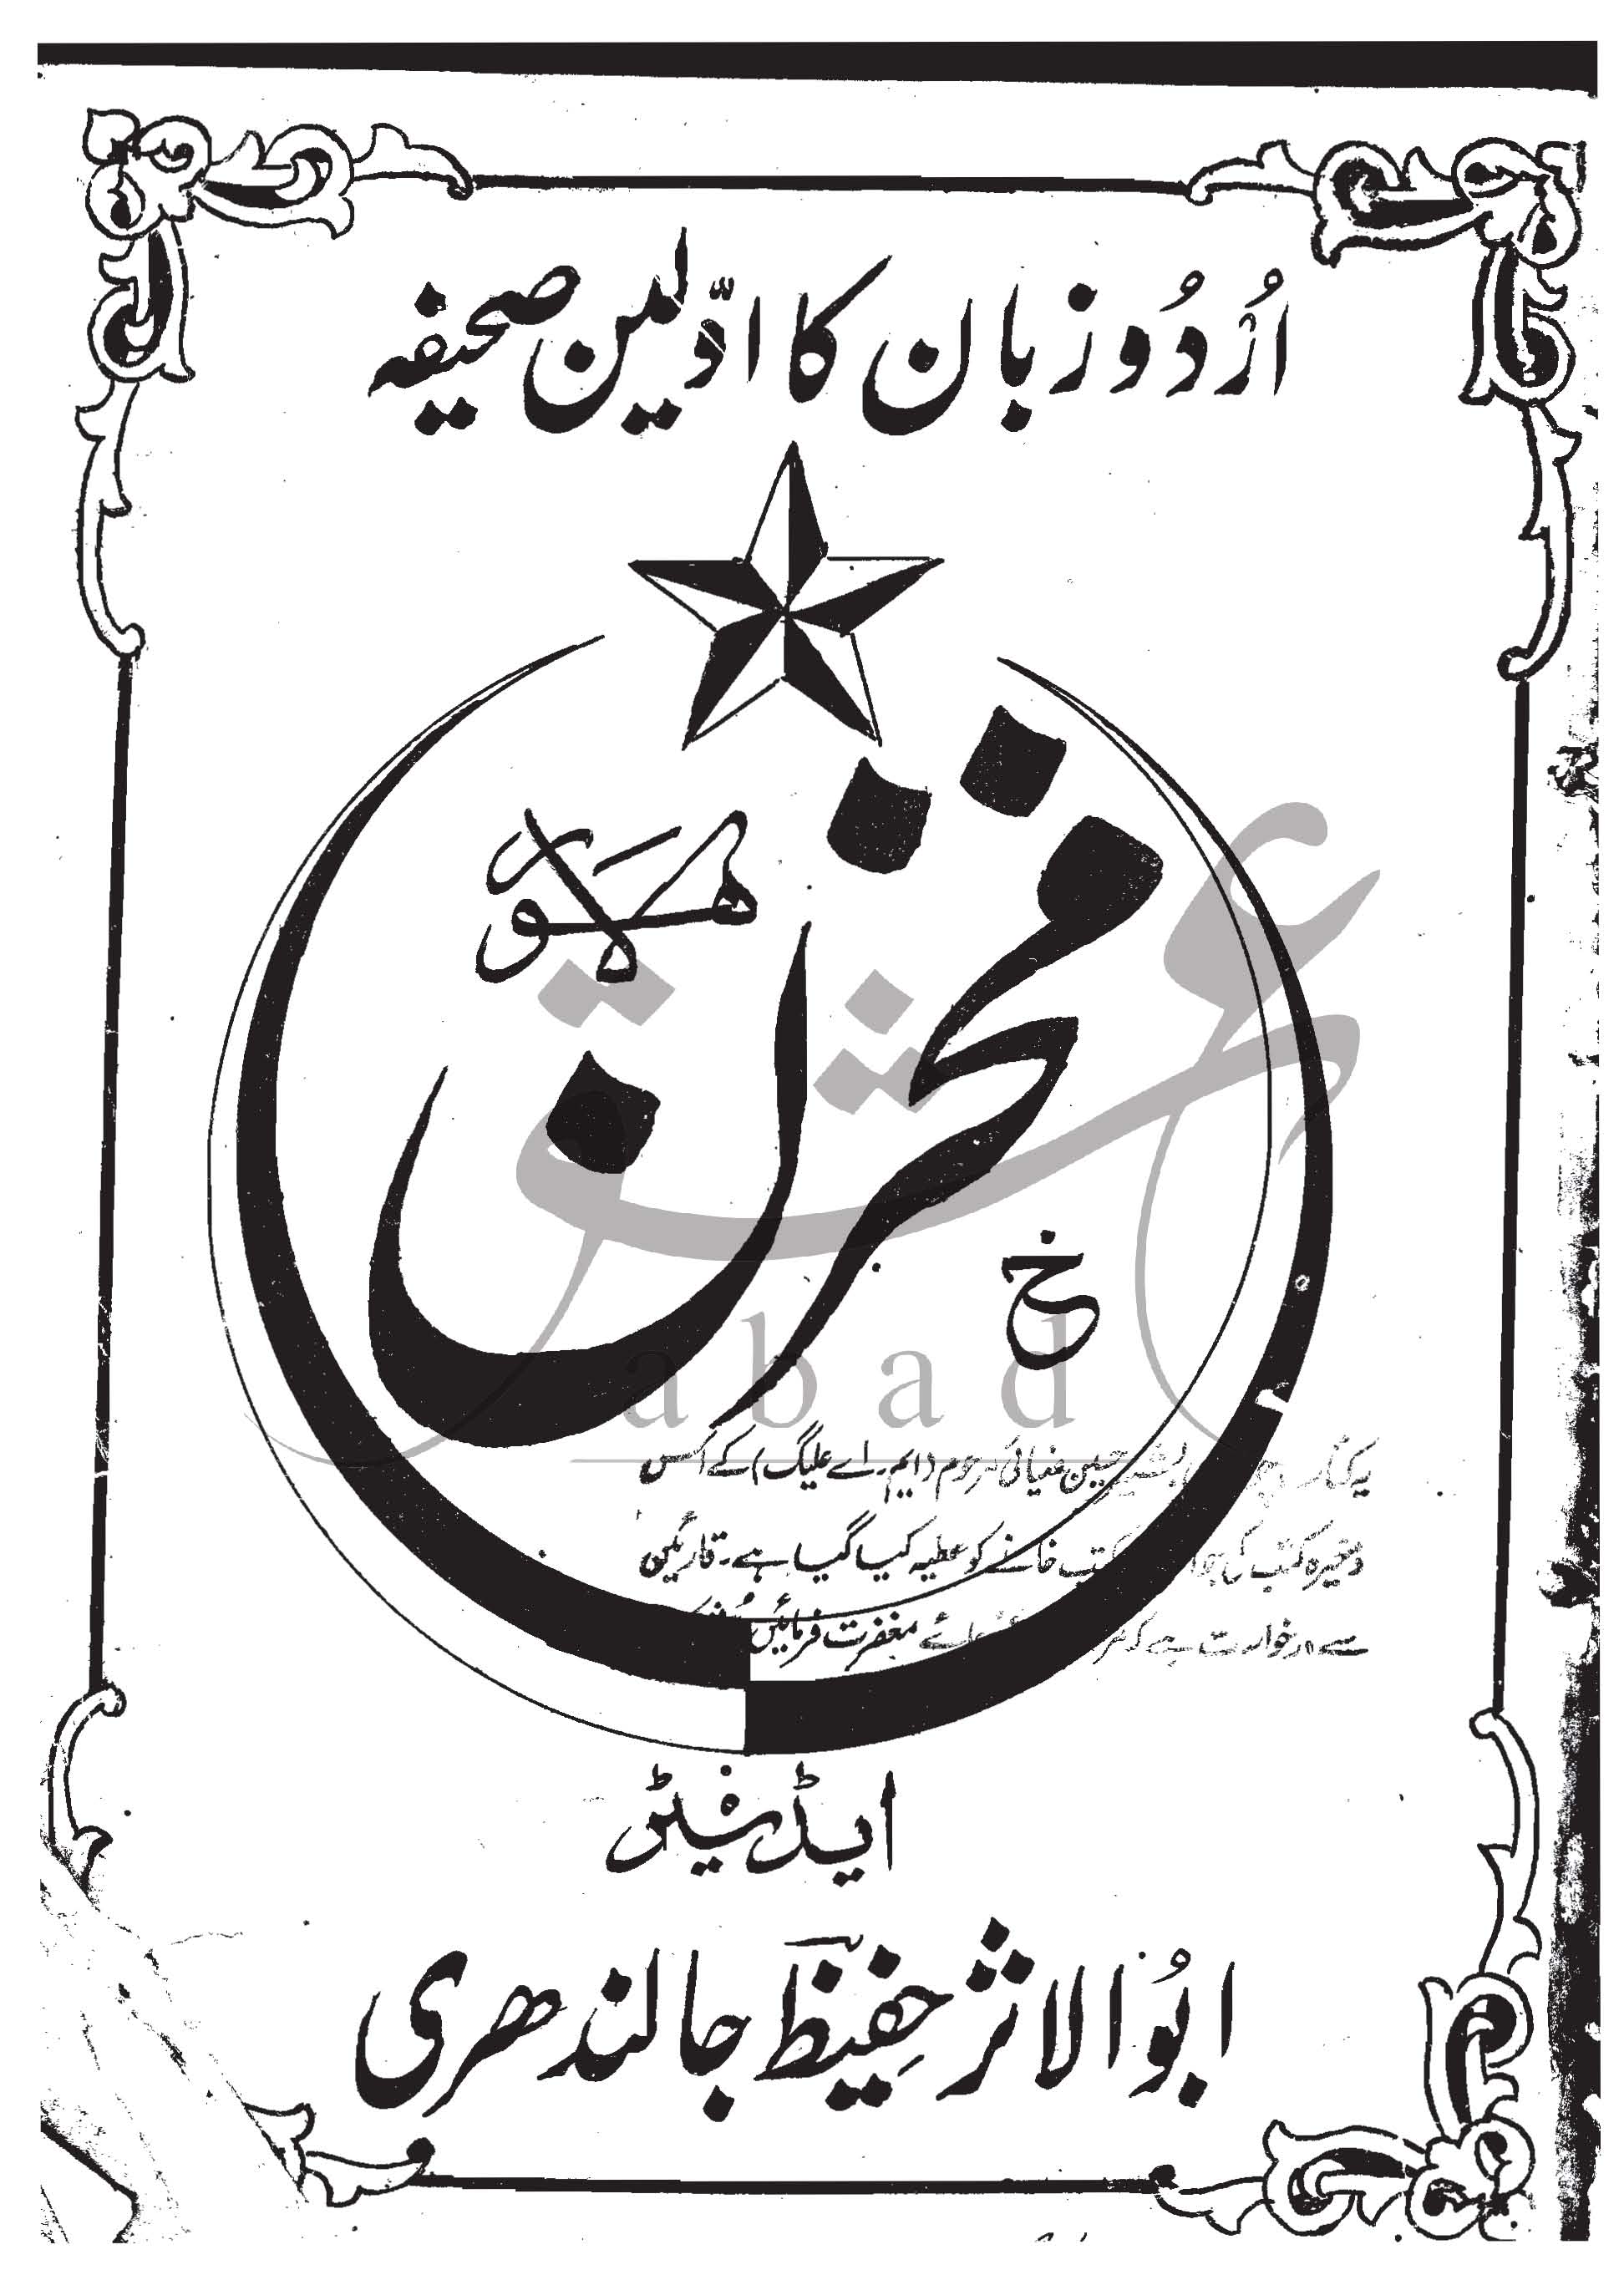 اُردُو زبان کا اوّلین صحیفہ
مخزن
لاہور
خ
abad
حسین ضیائی مرحوم (ایم۔اے علیگ) کے
ذخیرہ کتب کی کتب خانے کو عطیہ کیا گیا ہے۔ قارئین
سے درخواست ہے کہ دعائے مغفرت فرمائیں
ایڈیٹر
ابُوالاثر حفیظؔ جالندھری